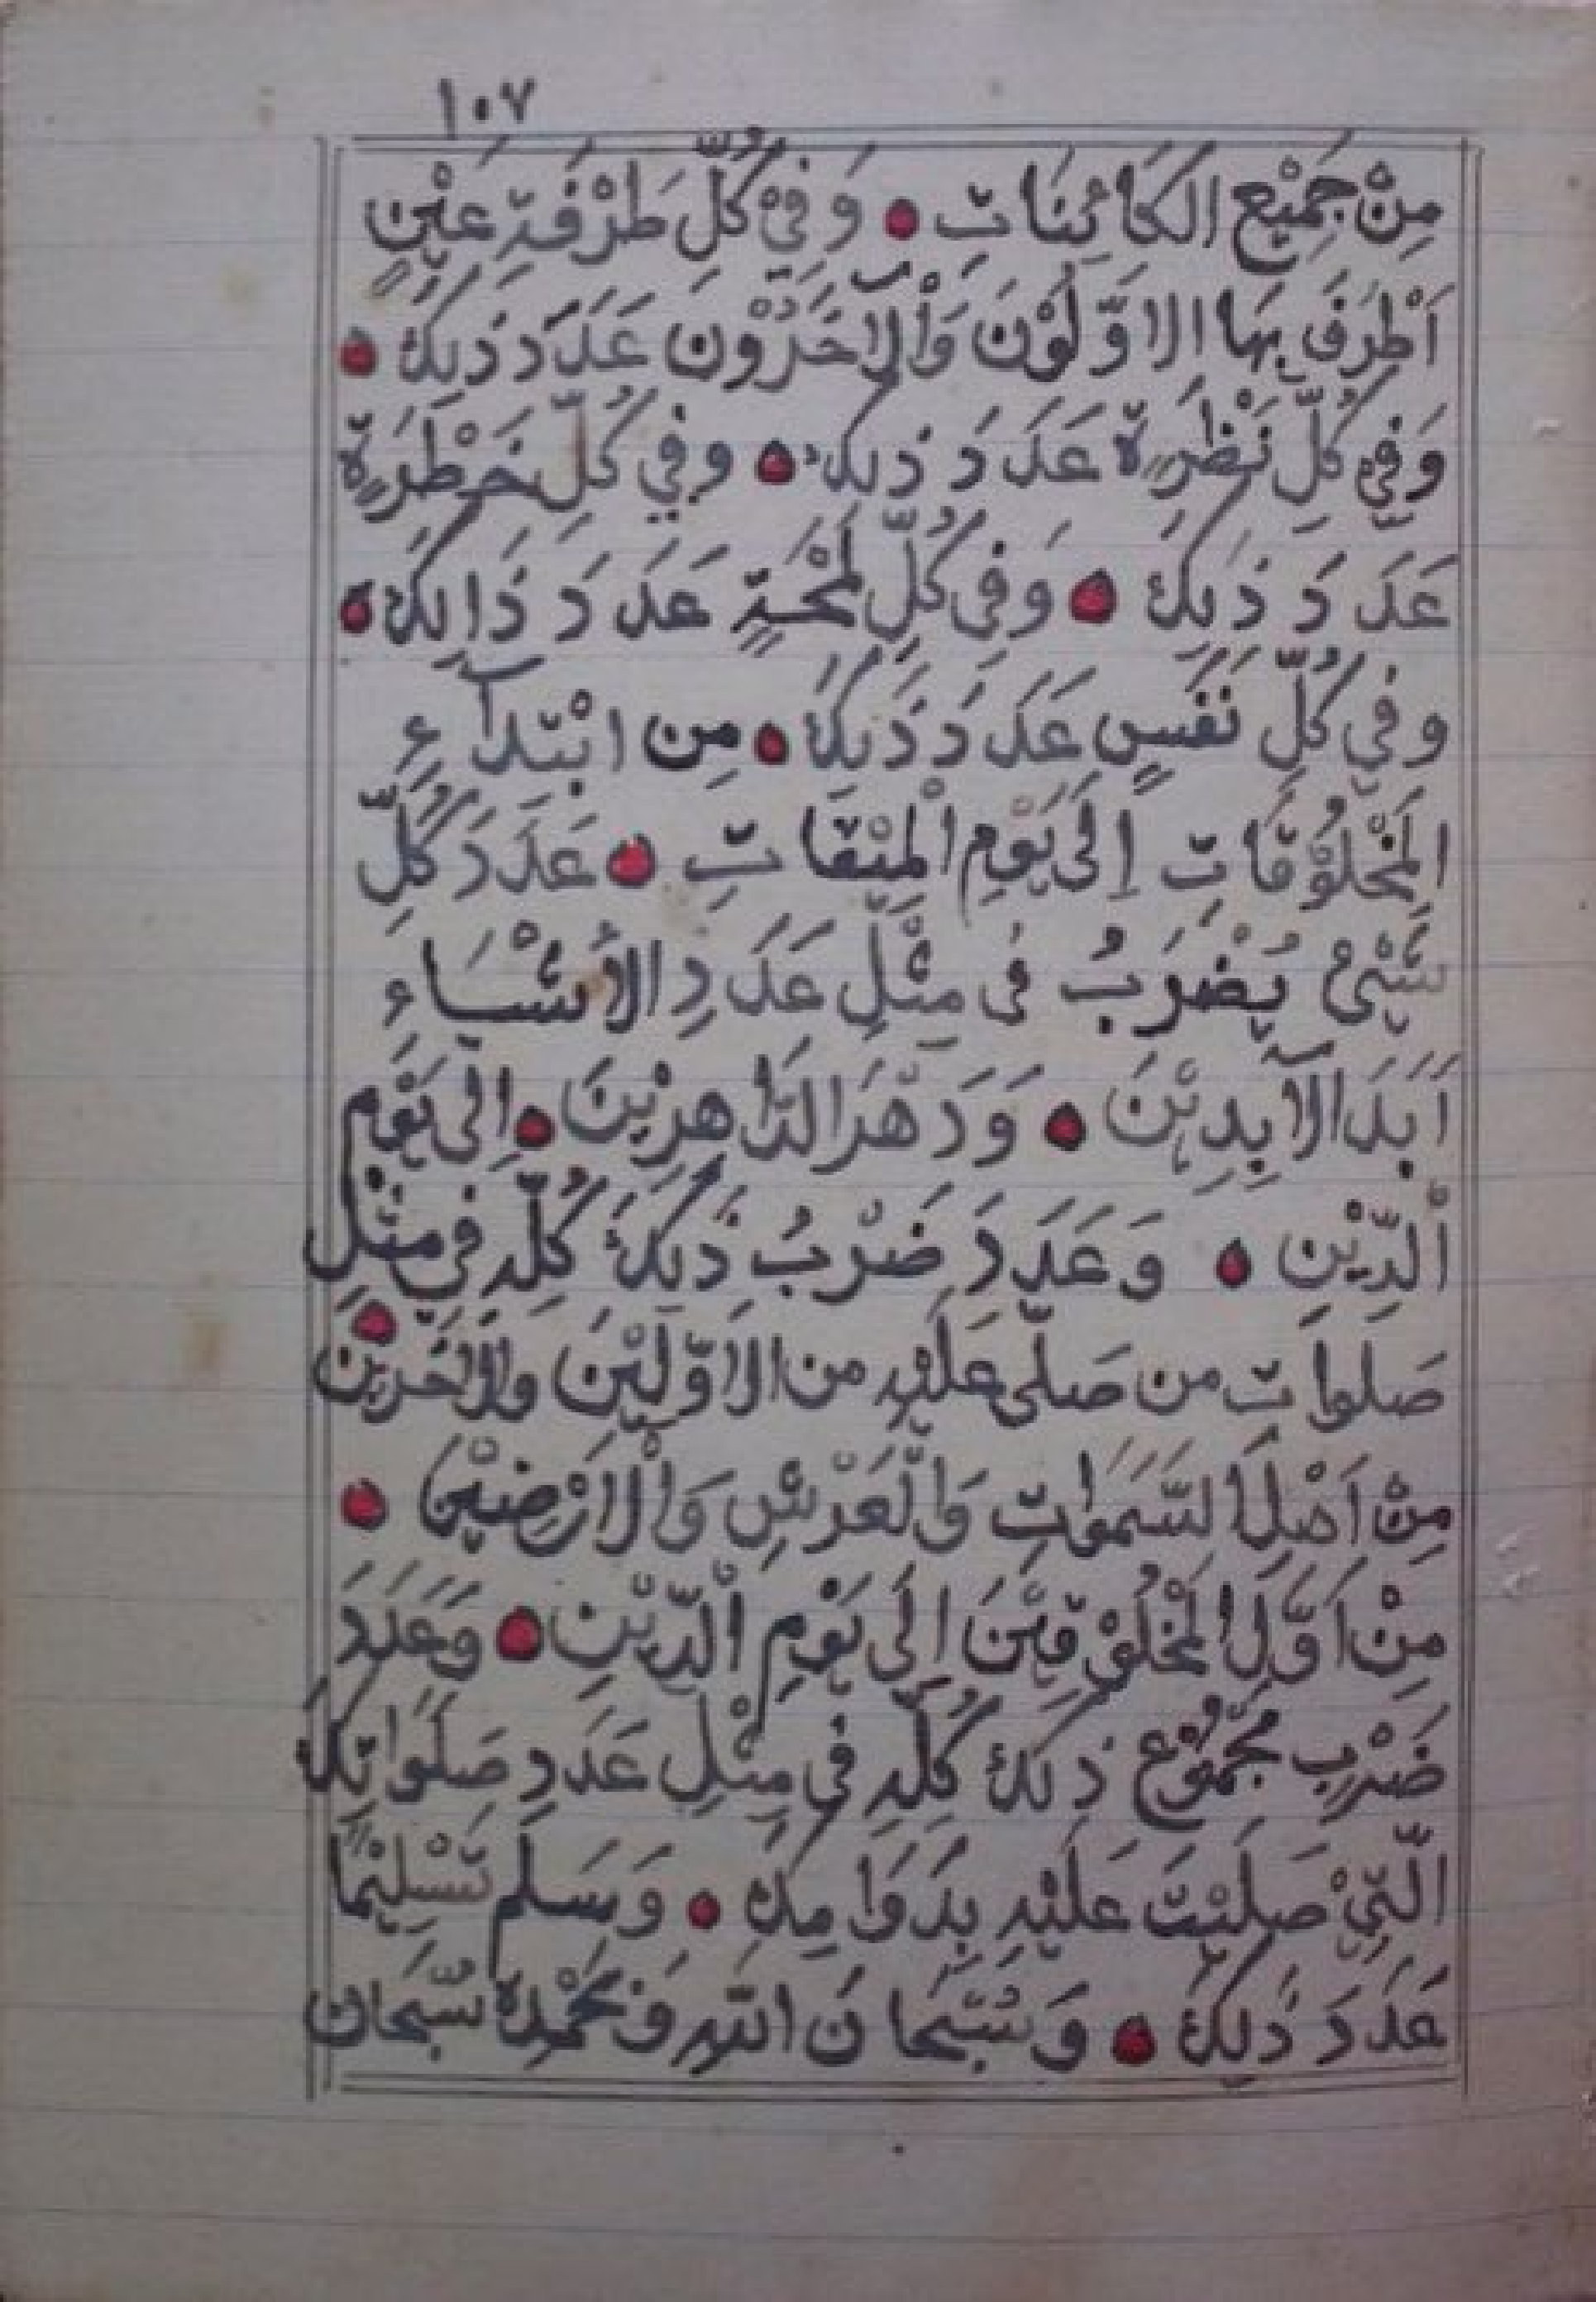 ١٠٧
مِنْ جَمِيْعِ الكَائِنَاتِ ● وَفِيْ كُلِّ طَرْفَةِ عَيْنٍ
اَطْرَفَ بِهَا الاوَّلُوْنَ وَاْلآخَرُوْن عَدَدَ ذَلِكَ ●
وَفِي كُلِّ نَظْرَةٍ عَدَدَ ذلِكَ ● وفِي كُلِّ خَطْرَةٍ
عَدَدَ ذَلِكَ ● وَفِى كُلِّ لَمْحَةٍ عَدَدَ ذَالِكَ ●
وفِي كُلِّ نَفَسٍ عَدَدَ ذَلِكَ ● مِن ابْتِدَآءِ
المَخْلُوْقَاتِ إِلَى يَوْمِ الْمِيْقَاتِ ● عَدَدَ كُلِّ
شَيْئٍ يُضْرَبُ فِى مِثْلِ عَدَدِ الأَشْيَاءِ
اَبَدَ الآبِدِيْنَ ● وَدَهْرَ الدَّاهِرِيْنَ ● اِلَى يَوْمِ
الْدِّيْنِ ● وَعَدَدَ ضَرْبُ ذَلِكَ كُلِّهِ فِي مِثْلِ
صَلواتِ من صَلَّى عَلَيْهِ من الاَوَّلِيْنَ والآخَرِيْن ●
مِنْ اَهْلِ السَّمَوَاتِ وَالْعَرْشِ وَاْلاَرْضِيْنَ ●
مِنْ اَوَّلِ المَخْلُوْقِيْنَ اِلَى يَوْمِ الْدِّيْنِ ● وَعَدَدَ
ضَرْبِ مَجْمُوْعِ ذلِكَ كُلِّهِ فِى مِثْلِ عَدَدِ صَلَوَاتِكَ
الَّتِيْ صَلَيْتَ عَلَيْهِ بِدَوَامِكَ ● وَسَلِم تَسْلِيْمًا
عَدَدَ ذَلِكَ ● وَسُبْحَانَ اللهِ وَبحَمْدِهِ سُبْحَان